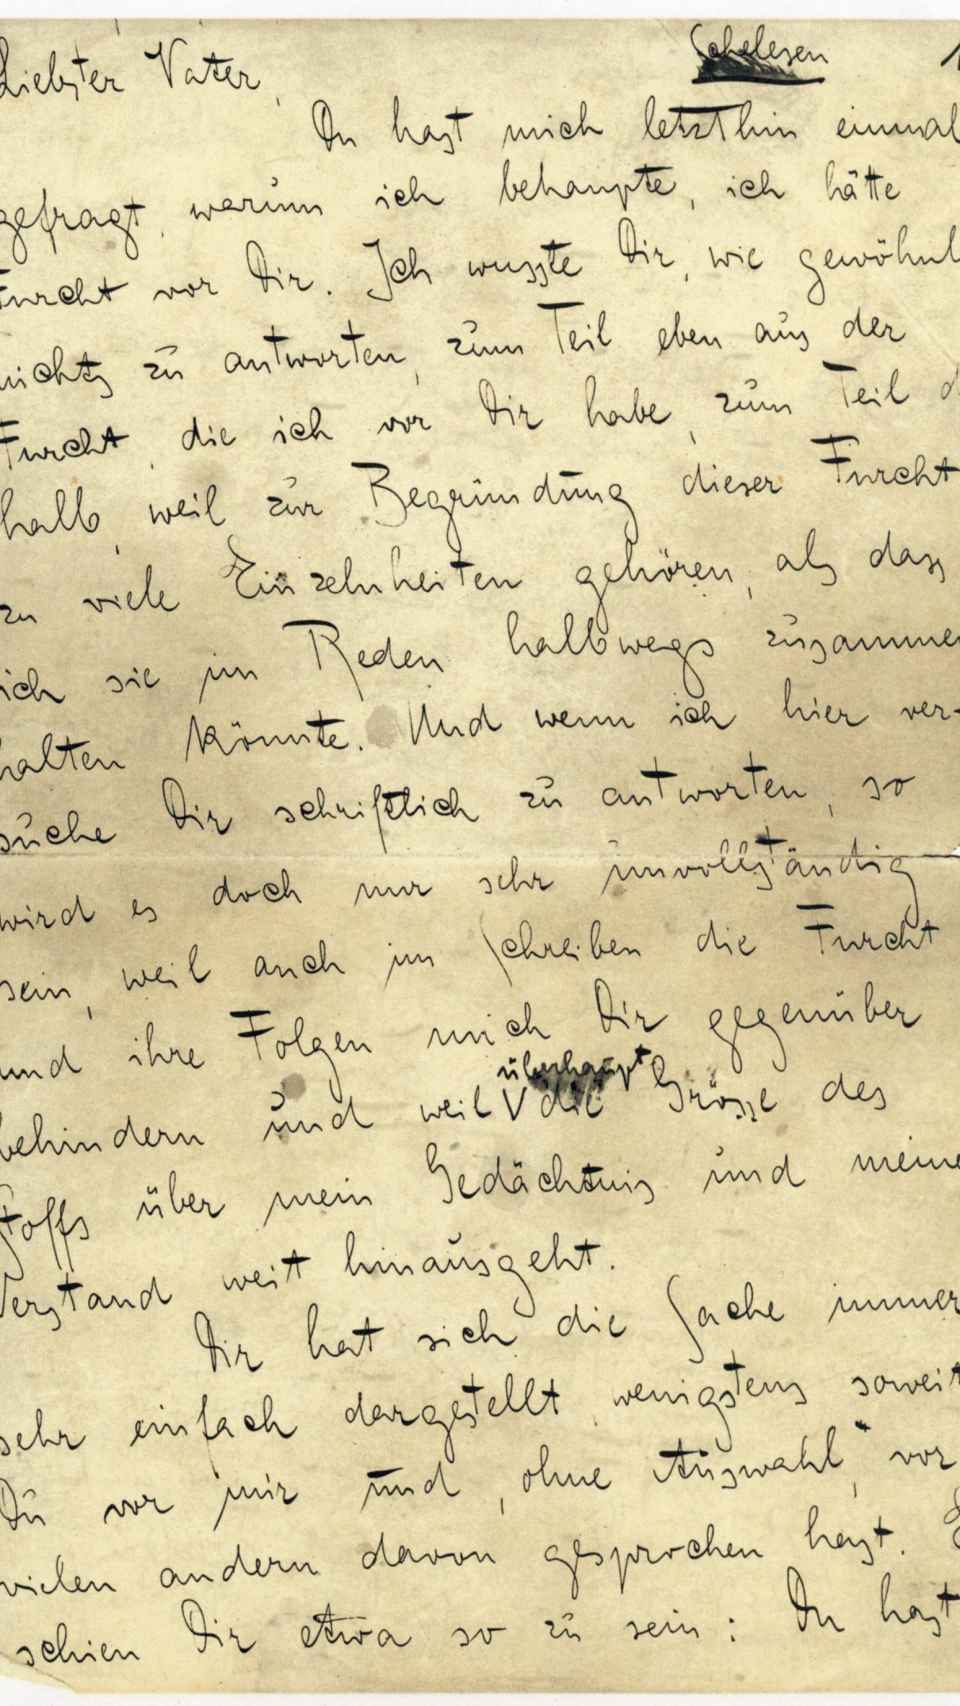 Liebster Vater,
Schelesen
Du hast mich letzthin einmal
gefragt, warum ich behaupte, ich hätte
Furcht vor Dir. Ich wusste Dir, wie gewöhnl
nichts zu antworten, zum Teil eben aus der
Furcht, die ich vor Dir habe, zum Teil d
halb, weil zur Begründung dieser Furcht
zu viele Einzelnheiten gehören, als dass
ich sie im Reden halbwegs zusammen
halten könnte. Und wenn ich hier ver-
suche Dir schriftlich zu antworten, so
wird es doch nur sehr unvollständig
sein, weil auch im Schreiben die Furcht
und ihre Folgen mich Dir gegenüber
überhaupt
behindern und weil die Grösse des
Stoffs über mein Gedächtnis und meine
Verstand weit hinausgeht.
Dir hat sich die Sache immer
sehr einfach dargestellt, wenigstens soweit
Du vor mir und, ohne Auswahl, vor
vielen andern davon gesprochen hast. E
schien Dir etwa so zu sein: Du hast